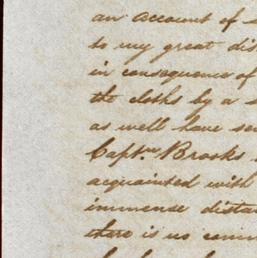 an account of
to my great dis
in consequence of
the cloths by a
as well have sen
Captn. Brooks
acquainted with
immense dista
there is no com